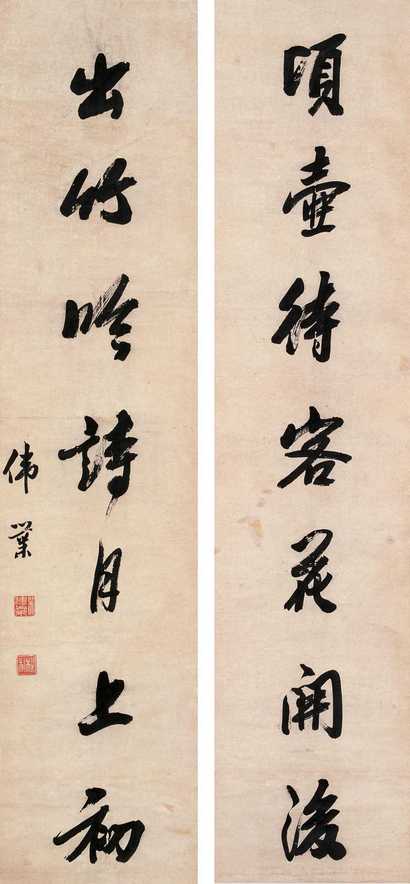 頃壺待客花開後
出竹吟詩月上初
偉業